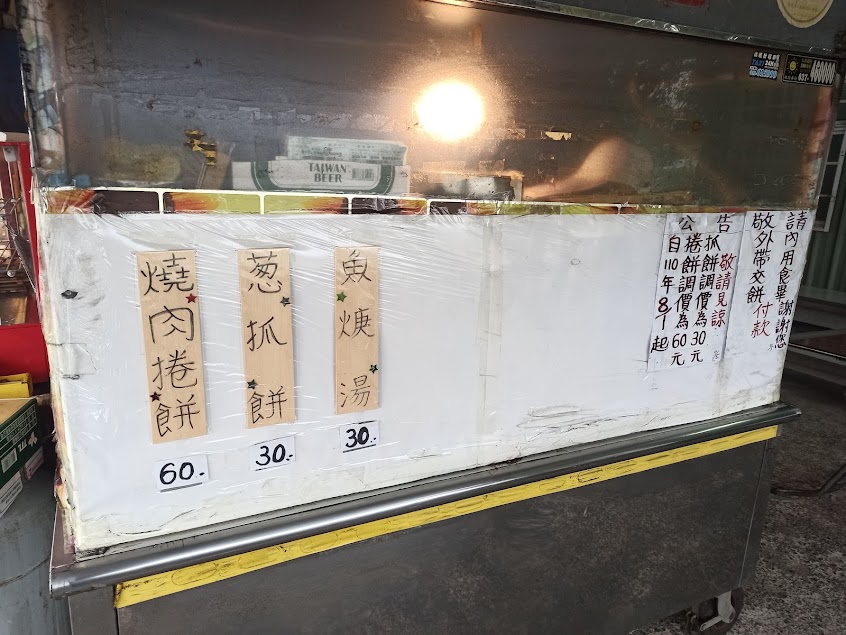 TAIWAN
BEER
燒肉捲餅
60.-
葱抓餅
30.-
魚焿湯
30.-
公告
自110年8/1起
捲餅調價為60元
抓餅調價為30元
敬請見諒
敬外帶交餅付款
請內用食畢謝謝您